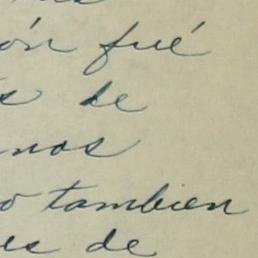 ón fué
s de
nos
o tambien
es de